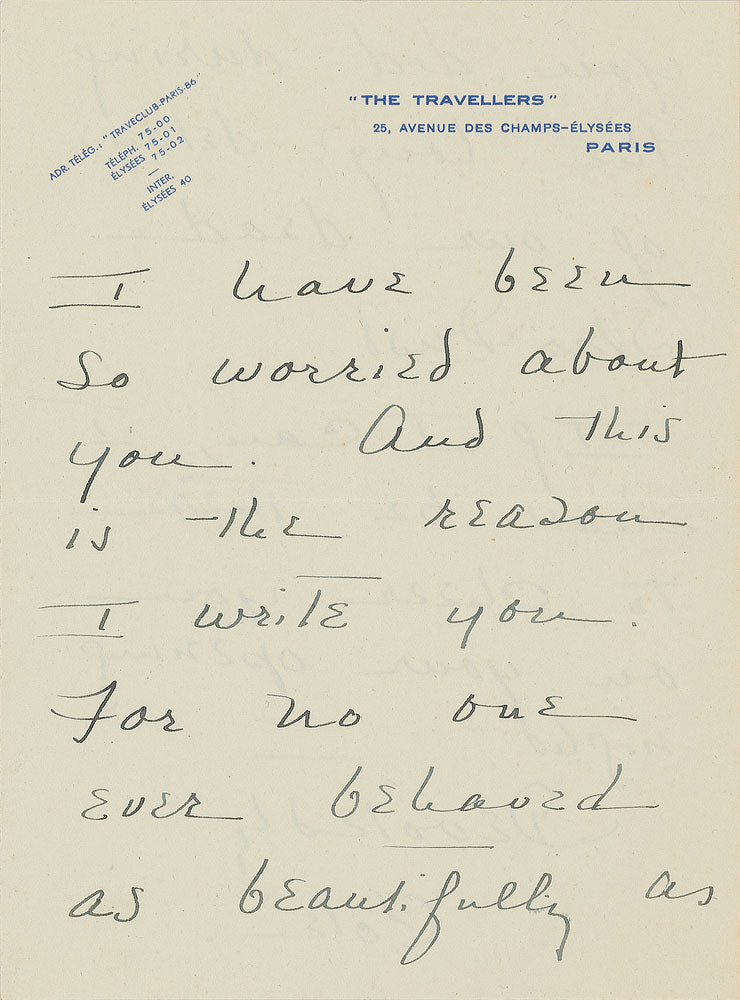 ADR. TÉLÉG.: "TRAVECLUB-PARIS-86"
TÉLÉPH. 75-00
ÉLYSÉES 75-01
75-02
INTER.
ÉLYSÉES 40
"THE TRAVELLERS"
25, AVENUE DES CHAMPS-ÉLYSÉES
PARIS
I have been
so worried about
you. And this
is the reason
I write you.
For no one
ever behaved
as beautifully as